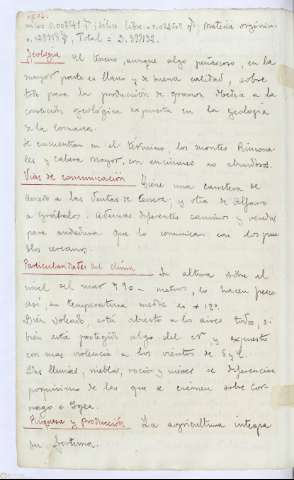 Geología El terreno, aunque algo peñascoso, en la
mayor parte es llano y de buena calidad, sobre
todo para la producción de granos. Debido a la
condición geológica expuesta en la geología
de la comarca.
Se encuentran en el término, los montes Rincona
les y Cabeza mayor, con encinares no abundosos.
Vías de comunicación Tiene una carretera de
acceso a las Ventas de Cervera, y otra de Alfaro
a Grávalos. Además diferentes caminos y sendas
para andadura que lo comunican con los pue
blos cercanos.
Particularidades del clima La altura sobre el
nivel del mar 790 metros, lo hacen fresco
así, su temperatura media es + 12º.
Bien soleado, está abierto a los aires todos, si
bien está protegido algo del N y expuesto
con mas violencia a los vientos de E y S.
Las lluvias, nieblas, rocío y nieves se diferencian
poquísimo de las que se ciernen sobre Cor
nago e Igea.
Riqueza y producción La agricultura integra
su